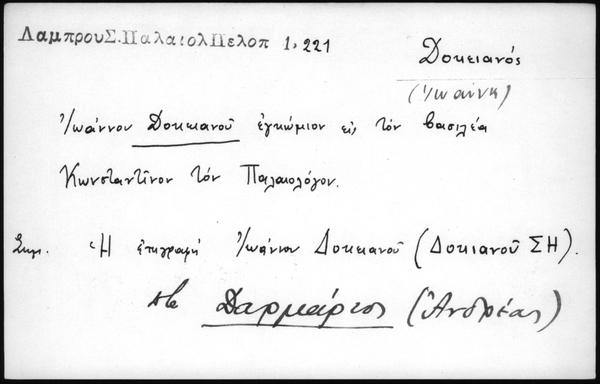 ΛαμπρουΣ.ΠαλαιολΠελοπ 1, 221
Δοκειανός
(Ἰωάννης)
Ἰωάννου Δοκειανοῦ ἐγκώμιον εἰς τὸν βασιλέα
Κωνσταντῖνον τὸν Παλαιολόγον.
Σημ. Ἡ ἐπιγραφὴ Ἰωάννου Δοκειανοῦ (Δοκιανοῦ ΣΗ).
Δαρμάριος (Ἀνδρέας)